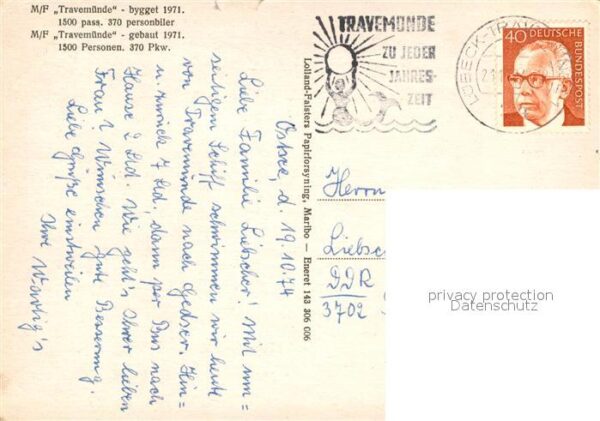 M/F „Travemünde“ - bygget 1971.
1500 pass. 370 personbiler
M/F „Travemünde“ - gebaut 1971.
1500 Personen. 370 Pkw.
Ostsee, d. 19.10.74
Liebe Familie Liebscher! Mit um=
seitigem Schiff schwimmen wir heute
von Travemünde nach Gedser. Hin=
u. zurück 7 Std, dann per Bus nach
Hause 2 Std. Wie geht's Ihrer lieben
Frau? Wünschen gute Besserung.
Liebe Grüße einstweilen
Ihre
Lolland-Falsters Papirforsyning, Maribo — Eneret 143 306 006
TRAVEMÜNDE
ZU JEDER
JAHRES-
ZEIT
LÜBECK-TRAVEMÜNDE
40 DEUTSCHE
BUNDESPOST
Herrn
DDR
3702
privacy protection
Datenschutz